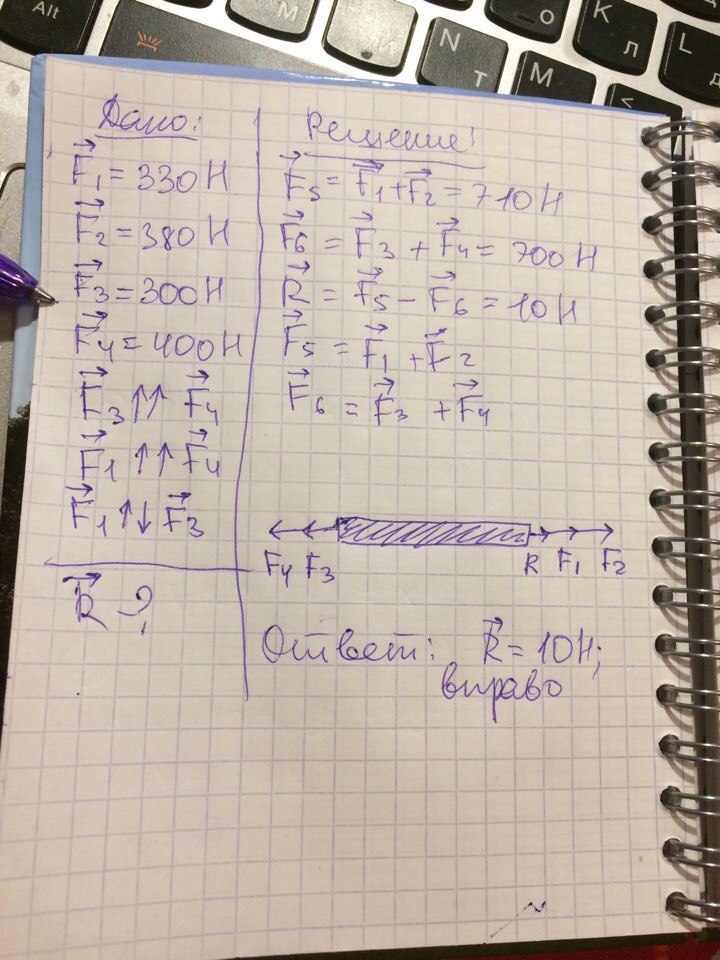 Alt
М
Н
N
Т
М
О
К
Л
L
Д
<
Дано:
F₁ = 330 Н
F₂ = 380 Н
F₃ = 300 Н
F₄ = 400 Н
F₃ ↑↑ F₄
F₁ ↑↑ F₄
F₁ ↑↓ F₃
R - ?
Решение!
F₅ = F₁ + F₂ = 710 Н
F₆ = F₃ + F₄ = 700 Н
R = F₅ - F₆ = 10 Н
F₅ = F₁ + F₂
F₆ = F₃ + F₄
F₄ F₃ R F₁ F₂
Ответ: R = 10 Н;
вправо